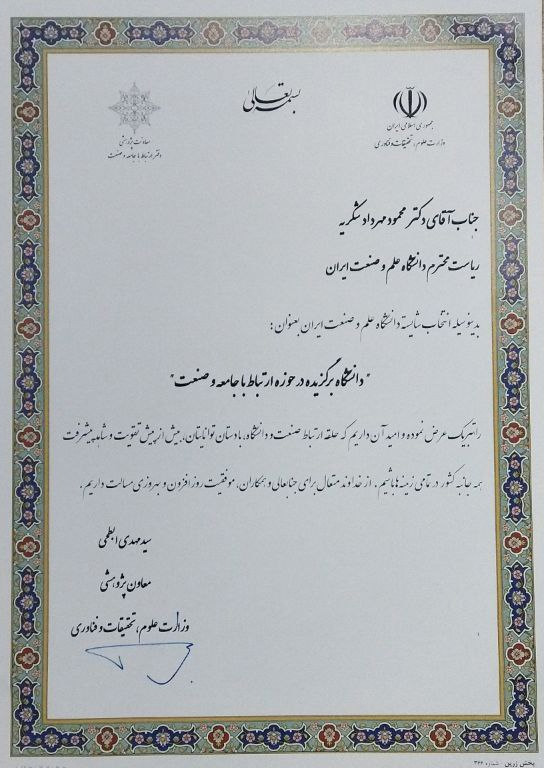 بسمه تعالی
جمهوری اسلامی ایران
وزارت علوم، تحقیقات و فناوری
معاونت پژوهشی
دفتر ارتباط با جامعه و صنعت
جناب آقای دکتر محمود مهرداد شکریه
ریاست محترم دانشگاه علم و صنعت ایران
بدینوسیله انتخاب شایسته دانشگاه علم و صنعت ایران بعنوان:
"دانشگاه برگزیده در حوزه ارتباط با جامعه و صنعت"
را تبریک عرض نموده و امید آن داریم که حلقه ارتباط صنعت و دانشگاه، با دستان توانایتان، بیش از پیش تقویت و شاهد پیشرفت
همه جانبه کشور در تمامی زمینه ها باشیم. از خداوند متعال برای جنابعالی و همکاران، موفقیت روز افزون و بهروزی مسالت داریم.
سید مهدی ابطحی
معاون پژوهشی
وزارت علوم، تحقیقات و فناوری
پخش زرین - شماره ۳۴۴